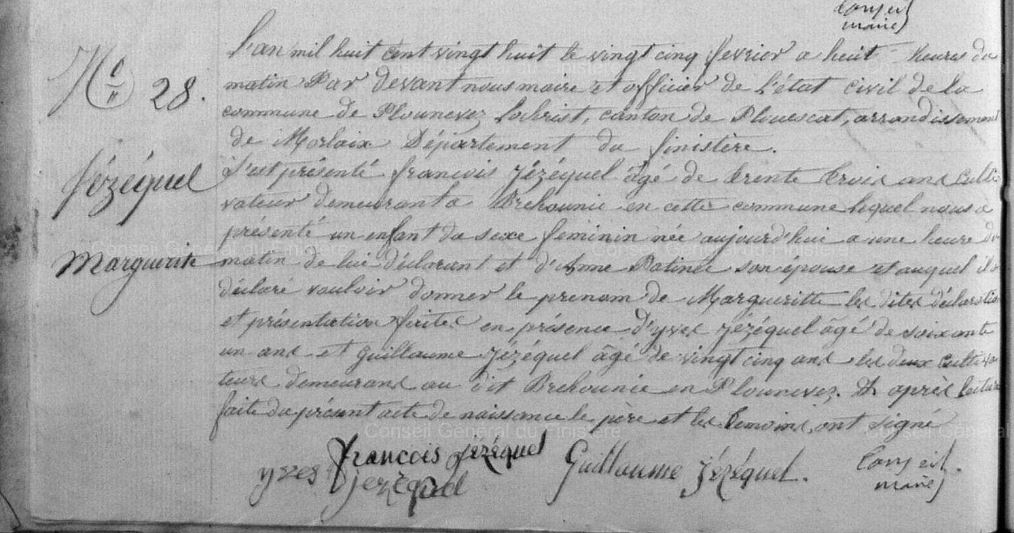 maire
L'an mil huit cent vingt huit le vingt cinq fevrier a huit heures du
No 28.
matin Par devant nous maire et officier de l'état civil de la
commune de Plounevez Lochrist, canton de Plouescat, arrondissement
de Morlaix Département du finistère.
S'est présenté francois Jézéquel âgé de trente trois ans culti
Jézéquel
vateur demeurant a Brehounic en cette commune lequel nous a
présenté un enfant du sexe feminin née aujourd'hui a une heure du
Marguerite
matin de lui déclarant et d'Anne son épouse et auquel il a
déclaré vouloir donner le prenom de Margueritte les dites déclaration
et présentation faites en présence d'yves Jézéquel âgé de soixante
un ans et guillaume Jézéquel âgé de vingt cinq ans les deux cultiva
teurs demeurans au dit Brehounic en Plounevez. Et après lecture
faite du présent acte de naissance le père et les temoins ont signé
Conseil Général du Finistère
francois Jézéquel
yves Jezequel
Guillaume Jézéquel.
maire